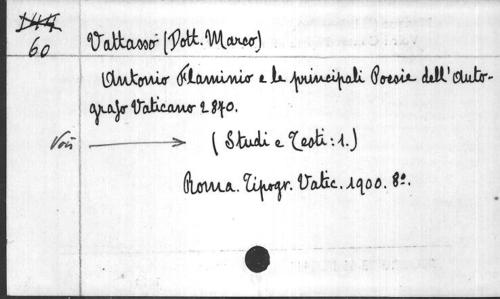 144
60
Vattasso (Dott. Marco)
Antonio Flaminio e le principali Poesie dell'Auto-
grafo Vaticano 2870.
Voir → (Studi e Testi: 1.)
Roma. Tipogr. Vatic. 1900. 8º.